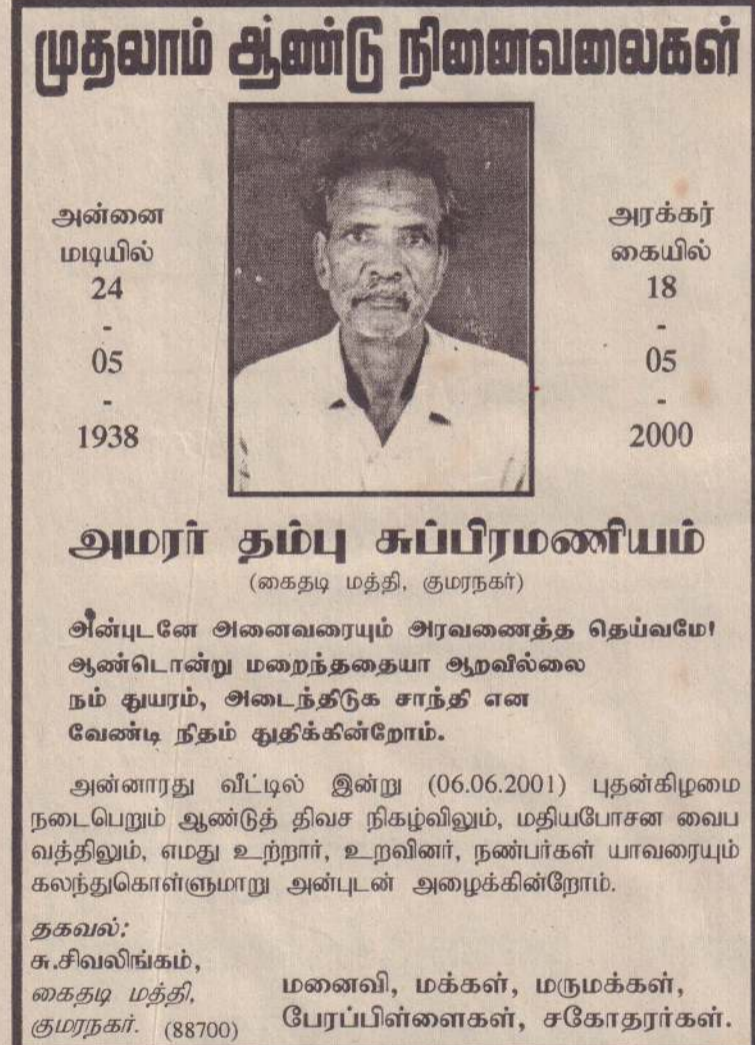 முதலாம் ஆண்டு நினைவலைகள்
அன்னை
மடியில்
24
-
05
-
1938
அரக்கர்
கையில்
18
-
05
-
2000
அமரர் தம்பு சுப்பிரமணியம்
(கைதடி மத்தி, குமரநகர்)
அன்புடனே அனைவரையும் அரவணைத்த தெய்வமே!
ஆண்டொன்று மறைந்ததையா ஆறவில்லை
நம் துயரம், அடைந்திடுக சாந்தி என
வேண்டி நிதம் துதிக்கின்றோம்.
அன்னாரது வீட்டில் இன்று (06.06.2001) புதன்கிழமை
நடைபெறும் ஆண்டுத் திவச நிகழ்விலும், மதியபோசன வைப
வத்திலும், எமது உற்றார், உறவினர், நண்பர்கள் யாவரையும்
கலந்துகொள்ளுமாறு அன்புடன் அழைக்கின்றோம்.
தகவல்:
சு.சிவலிங்கம்,
கைதடி மத்தி,
குமரநகர். (88700)
மனைவி, மக்கள், மருமக்கள்,
பேரப்பிள்ளைகள், சகோதரர்கள்.